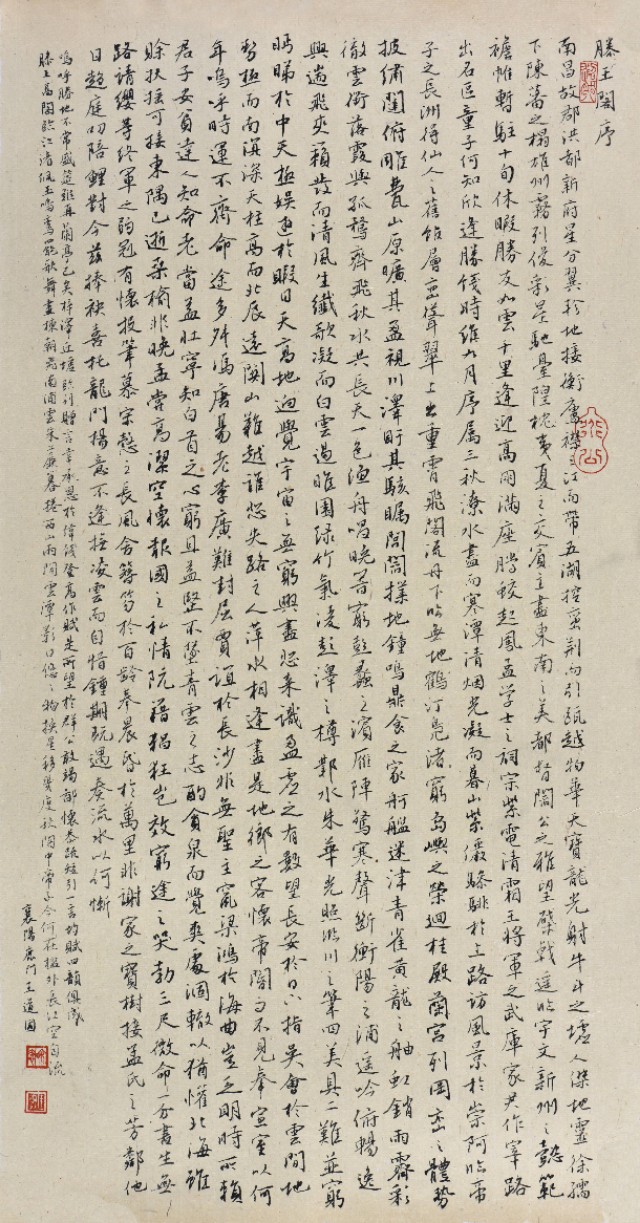 滕王閣序
南昌故郡洪都新府星分翼軫地接衡廬襟三江而帶五湖控蠻荊而引甌越物華天寶龍光射牛斗之墟人傑地靈徐孺
下陳蕃之榻雄州霧列俊彩星馳臺隍枕夷夏之交賓主盡東南之美都督閻公之雅望棨戟遙臨宇文新州之懿範
襜帷暫駐十旬休暇勝友如雲千里逢迎高朋滿座騰蛟起鳳孟学士之詞宗紫電清霜王將軍之武庫家君作宰路
出名區童子何知欣逢勝餞時維九月序屬三秋潦水盡而寒潭清烟光凝而暮山紫儼驂騑於上路訪風景於崇阿臨帝
子之長洲得仙人之舊館層巒聳翠上出重霄飛閣流丹下臨無地鶴汀鳧渚窮島嶼之縈迴桂殿蘭宮列岡巒之體勢
披繡闥俯雕甍山原曠其盈視川澤盱其駭矚閭閻撲地鐘鳴鼎食之家舸艦迷津青雀黃龍之舳虹銷雨霽彩
徹雲衢落霞與孤鶩齊飛秋水共長天一色漁舟唱晚響窮彭蠡之濱雁陣驚寒聲斷衡陽之浦遙吟俯暢逸
興遄飛爽籟發而清風生纖歌凝而白雲遏睢園綠竹氣凌彭澤之樽鄴水朱華光照臨川之筆四美具二難並窮
眄睇於中天極娛遊於暇日天高地迥覺宇宙之無窮興盡悲來識盈虛之有數望長安於日下指吳會於雲間地
勢極而南溟深天柱高而北辰遠關山難越誰悲失路之人萍水相逢盡是他鄉之客懷帝閽而不見奉宣室以何
年嗚呼時運不齊命途多舛馮唐易老李廣難封屈賈誼於長沙非無聖主竄梁鴻於海曲豈乏明時所賴
君子安貧達人知命老當益壯寧知白首之心窮且益堅不墜青雲之志酌貪泉而覺爽處涸轍以猶懽北海雖
賒扶搖可接東隅已逝桑榆非晚孟嘗高潔空懷報國之私情阮籍猖狂豈效窮途之哭勃三尺微命一介書生無
路請纓等終軍之弱冠有懷投筆慕宗愨之長風舍簪笏於百齡奉晨昏於萬里非謝家之寶樹接孟氏之芳鄰他
日趨庭叨陪鯉對今茲捧袂喜托龍門楊意不逢撫凌雲而自惜鍾期既遇奏流水以何慚
嗚呼勝地不常盛筵難再蘭亭已矣梓澤丘墟臨別贈言幸承恩於偉餞登高作賦是所望於群公敢竭鄙懷恭疏短引一言均賦四韻俱成
滕王高閣臨江渚佩玉鳴鸞罷歌舞畫棟朝飛南浦雲朱簾暮捲西山雨閒雲潭影日悠悠物換星移幾度秋閣中帝子今何在檻外長江空自流
襄陽鹿門王道國